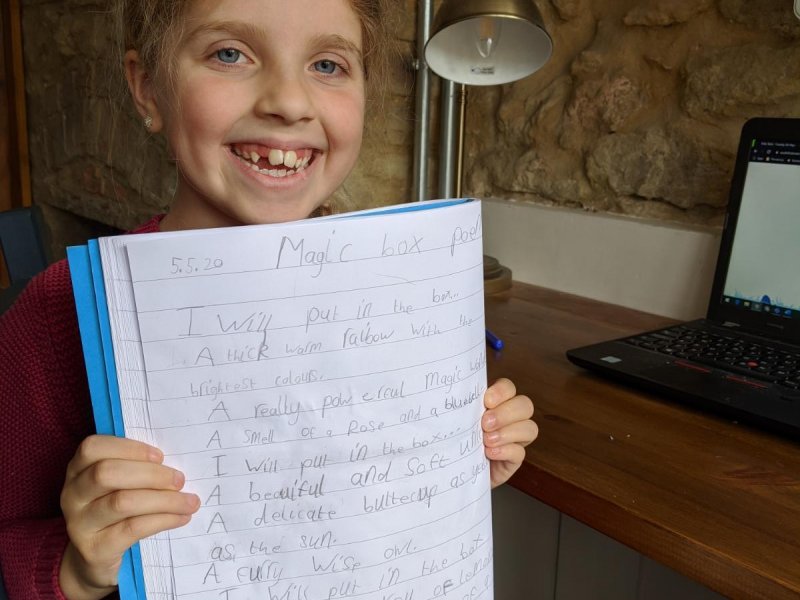 5.5.20 Magic box poem
I will put in the box...
A thick worm raibow with the
brightest colours.
A really powercul Magic
A smell of a Rose and a bluebell
I will put in the box....
A beauiful and soft
A delicate buttercup as
as the sun.
A furry wise owl.
I will put in the box
of